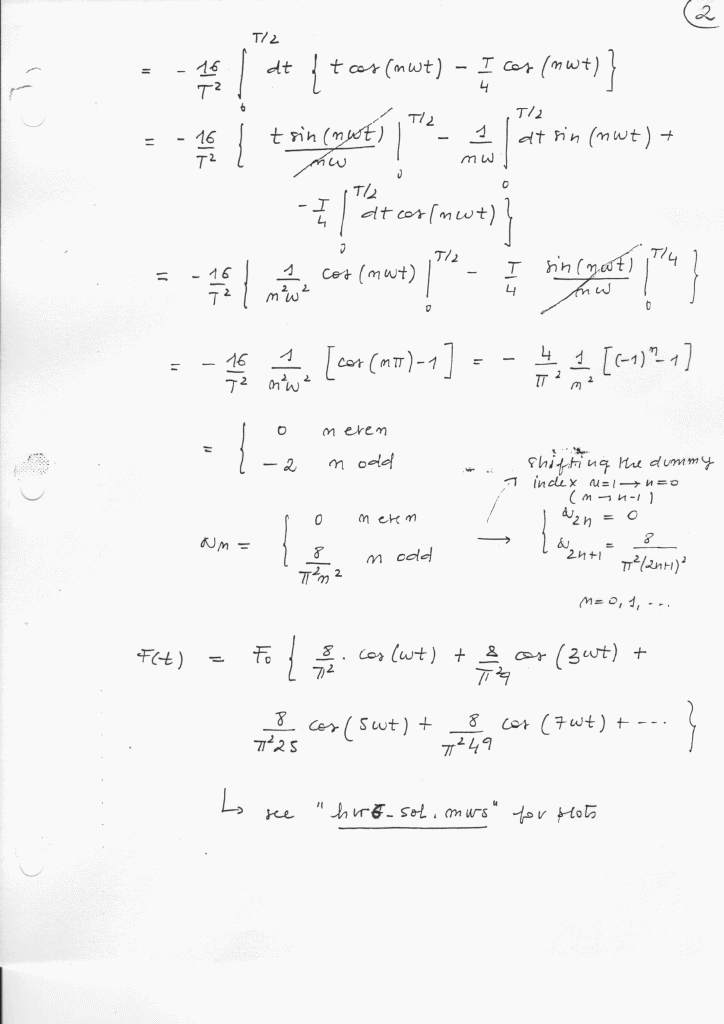 2
= - 16/T² ∫₀^{T/2} dt { t cos(nωt) - T/4 cos(nωt) }
= - 16/T² { t sin(nωt)/nω |₀^{T/2} - 1/nω ∫₀^{T/2} dt sin(nωt) +
- T/4 ∫₀^{T/2} dt cos(nωt) }
= - 16/T² { 1/n²ω² cos(nωt) |₀^{T/2} - T/4 sin(nωt)/nω |₀^{T/4} }
= - 16/T² 1/n²ω² [cos(nπ)-1] = - 4/π² 1/n² [(-1)ⁿ-1]
= { 0 n even
-2 n odd
shifting the dummy
index n=1 → n=0
(n → n-1)
aₙ = { 0 n even
8/π²n² n odd
→ { a₂ₙ = 0
a₂ₙ₊₁ = 8/π²(2n+1)²
n=0,1,...
F(t) = F₀ { 8/π² · cos(ωt) + 8/π²9 cos(3ωt) +
8/π²25 cos(5ωt) + 8/π²49 cos(7ωt) + --- }
↳ see "hw6-sol.mws" for plots